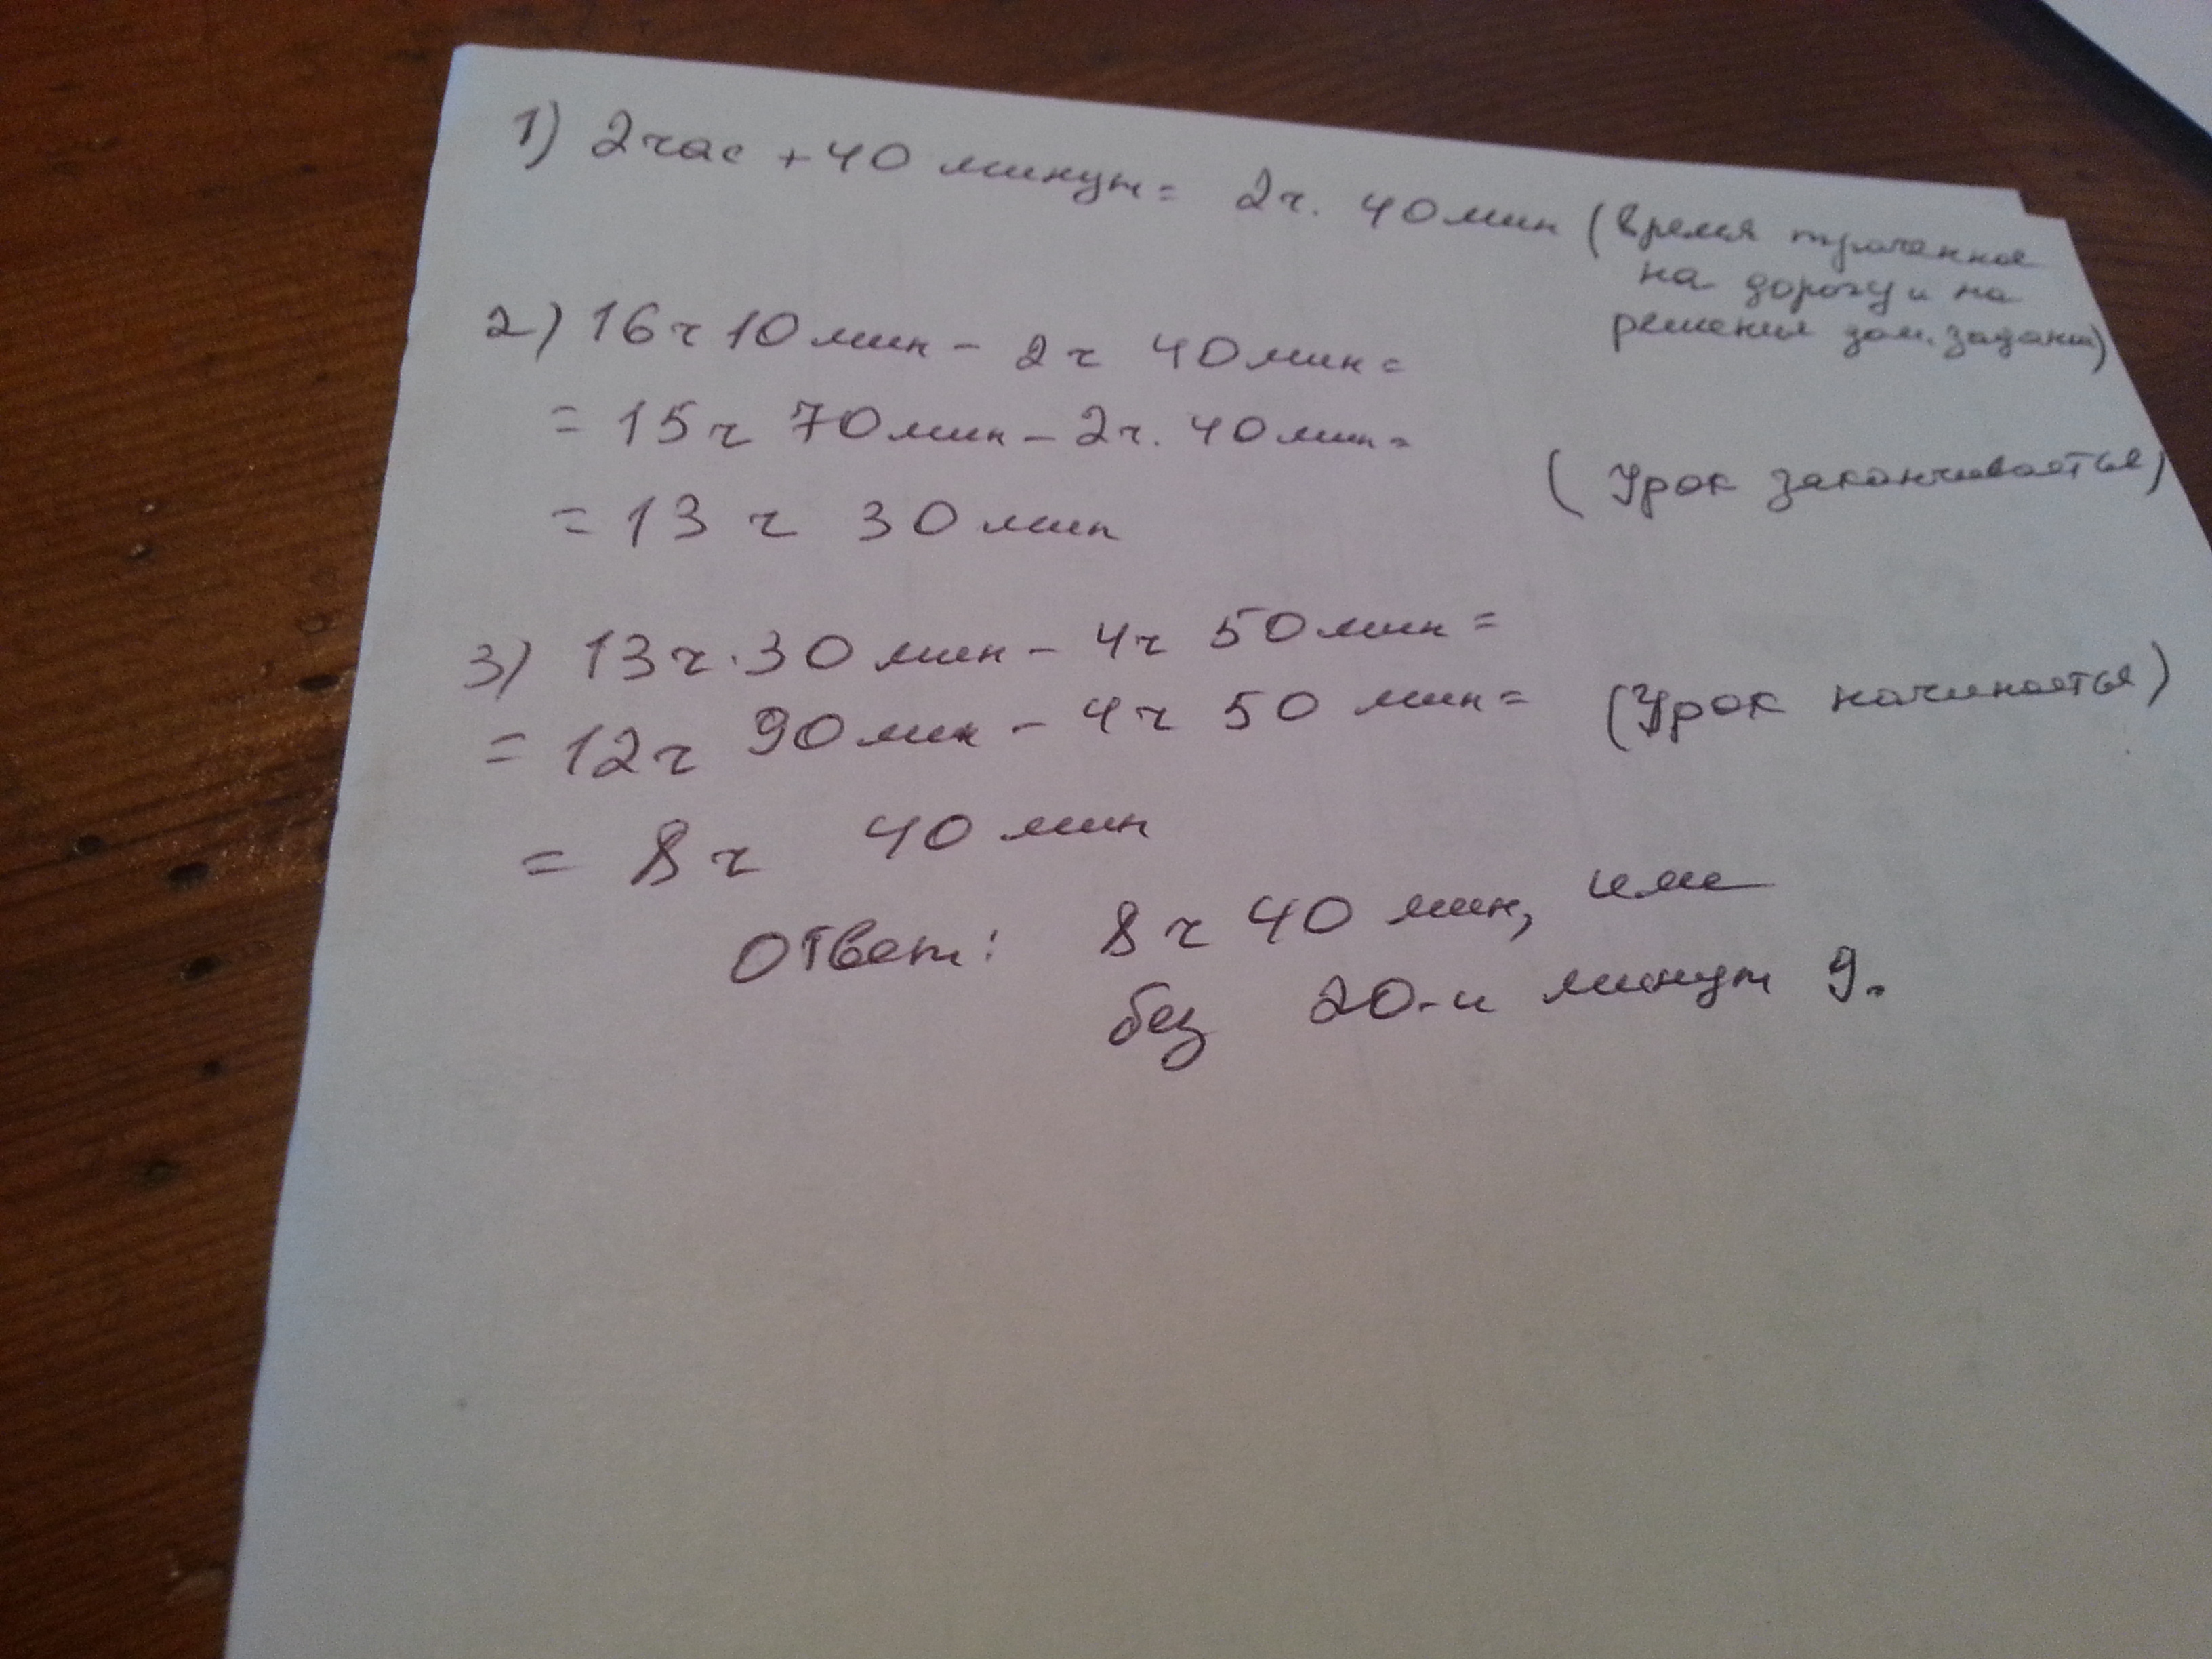 1) 2 час + 40 минут = 2 ч. 40 мин (время траченное
на дорогу и на
решения дом. задани)
2) 16 ч 10 мин - 2 ч 40 мин =
= 15 ч 70 мин - 2 ч. 40 мин =
= 13 ч 30 мин
(Урок заканчиваеться)
3) 13 ч. 30 мин - 4 ч 50 мин =
= 12 ч 90 мин - 4 ч 50 мин = (Урок начинаеться)
= 8 ч 40 мин
Ответ: 8 ч 40 мин, или
без 20-и минут 9.